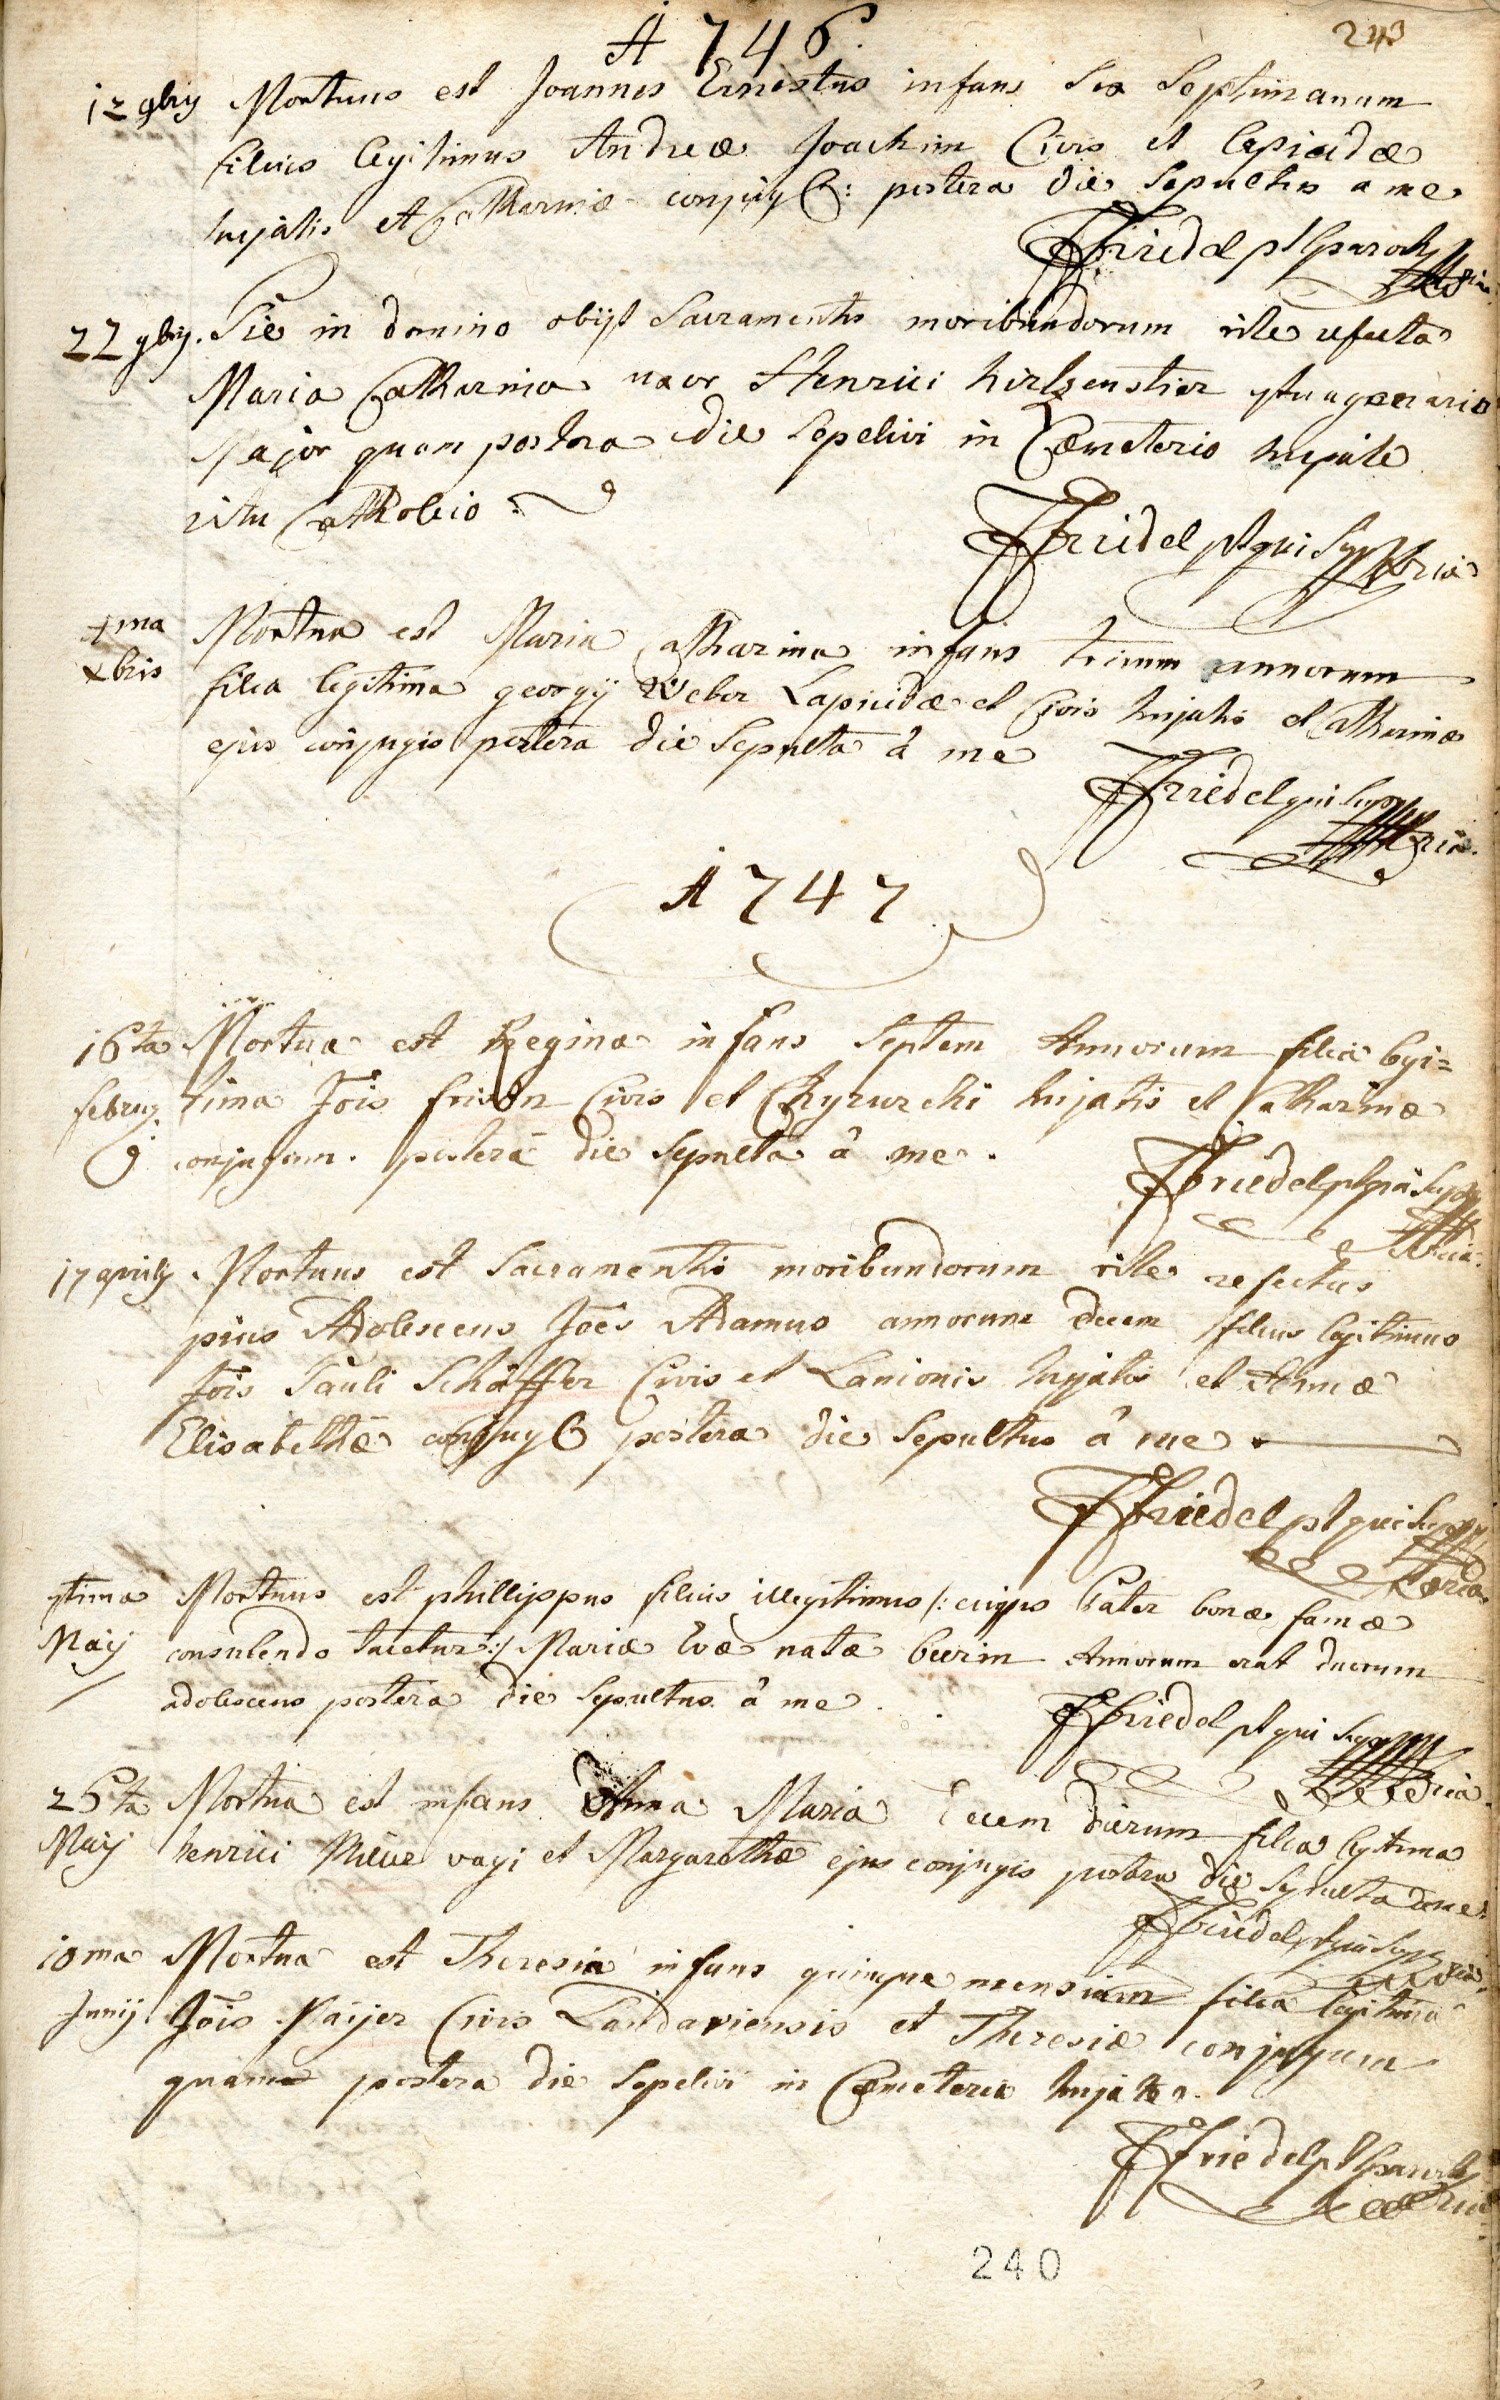 A 1746.
243
12 9bris Mortuus est Joannes Ernestus infans sex septimanum
filius legitimus Andreæ Joachim Civis et lapicidæ
hujatis et Catharinæ conjug: postera die sepultus a me
FFriedel pl parochus
22 9bris. Pie in domino obijt Sacramentis moribundorum rite refecta
Maria Catharina uxor Henrici hirtzenstier
major quam postera die sepelivi in Cœmeterio hujate
ritu Catholico
FFriedel pl qui supra
1ma Mortua est Maria Catharina infans trium annorum
xbris filia legitima georgij Weber Lapicidæ et Civis hujatis et Catharinæ
ejus conjugis postera die sepulta â me
FFriedel qui supra
A 1747
16ta Mortua est Regina infans septem Annorum filia legi=
februarij tima Jois frison Civis et Chyrurchi hujatis et Catharinæ
conjugum. postera die sepulta â me.
FFriedel pl qui supra
17 aprilis Mortuus est Sacramentis moribundorum rite refectus
pius Adolescens Joes Adamus annorum decem filius legitimus
Jois Pauli Schäffer Civis et Lanionis hujatis et Annæ
Elisabethæ conjug postera die sepultus â me
FFriedel pl qui supra
7tima Mortuus est phillippus filius illegitimus /: cujus Pater bonæ famæ
Maij consulendo tacetur :/ Mariæ Evæ natæ beerin Annorum erat duorum
adolescens postera die sepultus â me
FFriedel pl qui supra
26ta Mortua est infans Anna Maria Decem dierum filia legitima
Maij henrici vagi et Margarethæ ejus conjugis postera die sepulta â me
FFriedel pl qui supra
10ma Mortua est Theresia infans quinque mensium filia legitima
Junij Jois Paijer Civis Landaviensis et Theresiæ conjugum
quam postera die sepelivi in Cœmeterio hujate.
FFriedel pl parochus
240